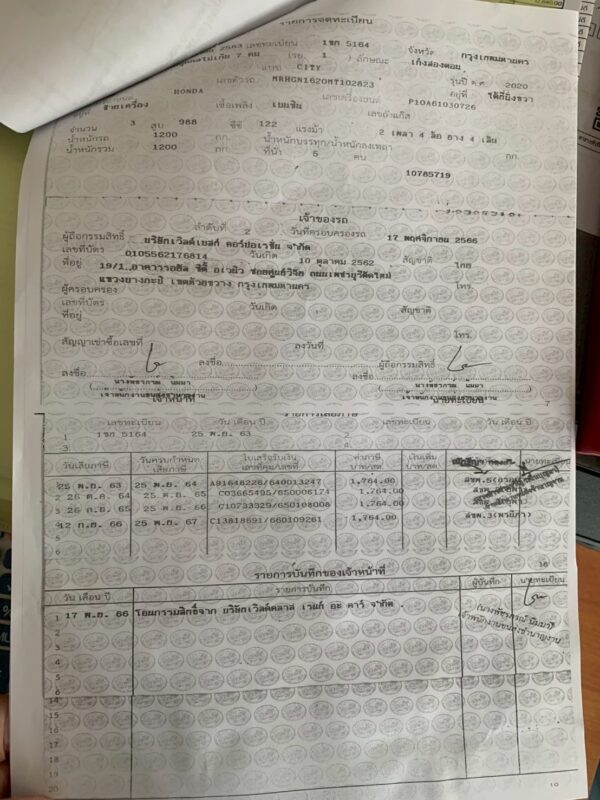 รายการจดทะเบียน
2563 เลขทะเบียน 1ขก 5164 จังหวัด กรุงเทพมหานคร
ไม่เกิน 7 คน (รย. 1 ) ลักษณะ เก๋งสองตอน
แบบ CITY รุ่นปี ค.ศ 2020
เลขตัวรถ MRHGN1620MT102823 อยู่ที่
HONDA เลขเครื่องยนต์ P10A61030726
ซ้ายเครื่อง เชื้อเพลิง เบนซิน เลขถังแก๊ส
จำนวน 3 สูบ 988 ซีซี 122 แรงม้า 2 เพลา 4 ล้อ ยาง 4 เส้น
น้ำหนักรถ 1200 กก. น้ำหนักบรรทุก/น้ำหนักลงเพลา กก.
น้ำหนักรวม 1200 กก. ที่นั่ง 5 คน
10785719
เจ้าของรถ
ลำดับที่ 2 วันที่ครอบครองรถ 17 พฤศจิกายน 2566
ผู้ถือกรรมสิทธิ์ บริษัทเวิลด์เซลก์ คอร์ปอเรชั่น จำกัด
เลขที่บัตร 0105562176814 วันเกิด 10 ตุลาคม 2562 สัญชาติ ไทย
ที่อยู่ 19/1 อาคารรอยัล ซิตี้ อเวนิว ซอยศูนย์วิจัย ถนนเพชรบุรีตัดใหม่ โทร.
แขวงบางกะปิ เขตห้วยขวาง กรุงเทพมหานคร
ผู้ครอบครอง
เลขที่บัตร วันเกิด สัญชาติ
ที่อยู่
โทร.
สัญญาเช่าซื้อเลขที่ ลงวันที่
ลงชื่อ ผู้ถือกรรมสิทธิ์
ลงชื่อ ลงชื่อ
เจ้าพนักงานขนส่งชำนาญงาน เจ้าพนักงานขนส่งชำนาญงาน
เจ้าหน้าที่ นายทะเบียน
7
รายการเสียภาษี
เลขทะเบียน วัน เดือน ปี เลขทะเบียน วัน เดือน ปี
1 1ขก 5164 25 พ.ย. 63 2
3 4
วันเสียภาษี วันครบกำหนดเสียภาษี ใบเสร็จรับเงิน เลขที่คุม/เลขที่ ค่าภาษี บาท/สต. เงินเพิ่ม บาท/สต. นายทะเบียน
25 พ.ย. 63 25 พ.ย. 64 A91648226/640013247 1,764.00
2 26 ต.ค. 64 25 พ.ย. 65 C03665495/650006174 1,764.00
3 26 ก.ย. 65 25 พ.ย. 66 C10733329/650108008 1,764.00
4 12 ก.ย. 66 25 พ.ย. 67 C13818691/660109261 1,764.00
5
6
16
รายการบันทึกของเจ้าหน้าที่
วัน เดือน ปี รายการบันทึก ผู้บันทึก นายทะเบียน
1 17 พ.ย. 66 โอนกรรมสิทธิ์จาก บริษัทเวิลด์คลาส เรนท์ อะ คาร์ จำกัด .
เจ้าพนักงานขนส่งชำนาญงาน
2
3
4
5
6
14
15
16
17
18
19
20
10